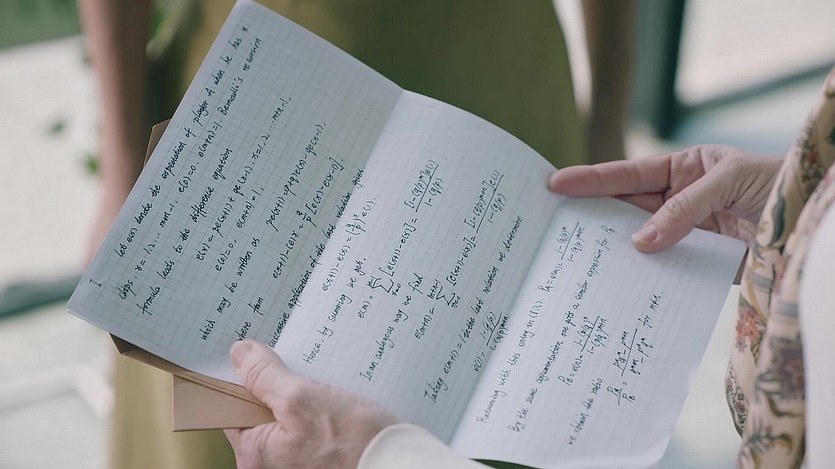 I Let e(x) denote the expectation of player A when he has x
chips. x = 1, 2, ... m+n-1. e(0) = 0. e(m+n) = 1. Bernoulli's recursion
formula leads to the difference equation
e(x) = pe(x+1) + qe(x-1), x = 1, 2 ... m+n-1.
e(0) = 0, e(m+n) = 1.
which may be written as
pe(x) + qe(x) = pe(x+1) + qe(x-1).
where from
e(x+1) - e(x) = q/p [e(x) - e(x-1)].
successive application of the last relation gives
e(x+1) - e(x) = (q/p)^x e(1).
Hence, by summing we get.
e(m) = Σ [e(x+1) - e(x)] = [1-(q/p)^m] e(1) / 1-(q/p)
In an analogous way we find
e(m+n) = Σ [e(x+1) - e(x)] = [1-(q/p)^m+n] e(1) / 1-(q/p)
Taking e(m+n) = 1 in the last relation we determine
e(1) = 1-(q/p) / 1-(q/p)^m+n
Returning with this entry in
P_A = e(m) = 1-(q/p)^m / 1-(q/p)^m+n
By the same argumentation one gets a similar expression for P_B
we obtain the ratio
for